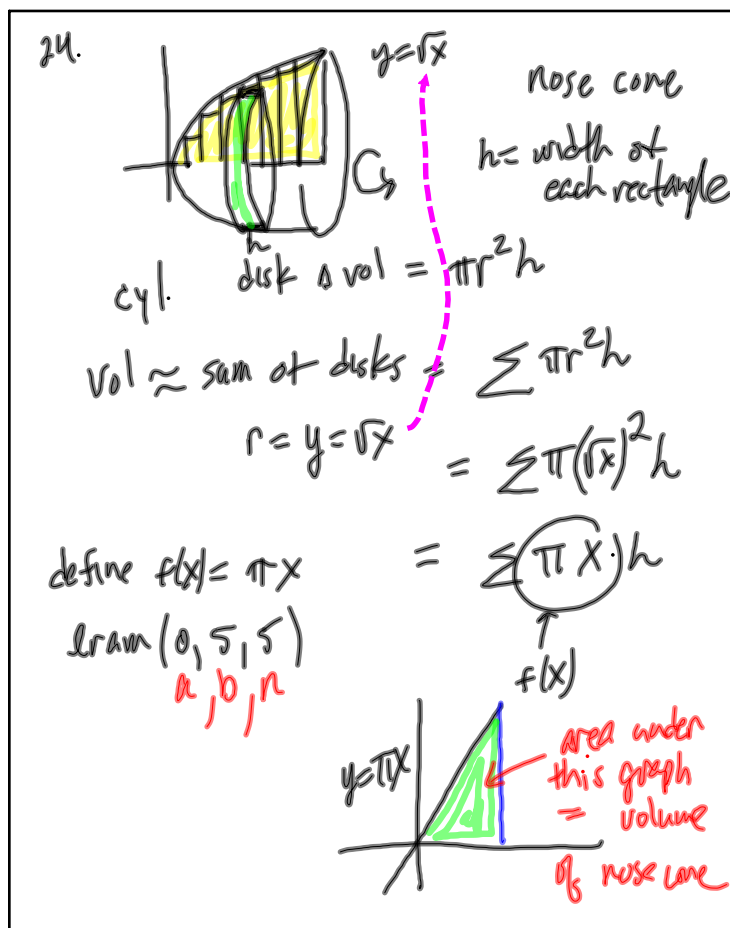 24.
y=√x
nose cone
h= width of
each rectangle
h
disk Δ vol = πr²h
cyl.
Vol ≈ sum of disks = Σ πr²h
r = y = √x
= Σ π(√x)²h
= Σ πx·h
define f(x) = πx
lram(0, 5, 5)
a, b, n
f(x)
y=πx
area under
this graph
= volume
of nose cone